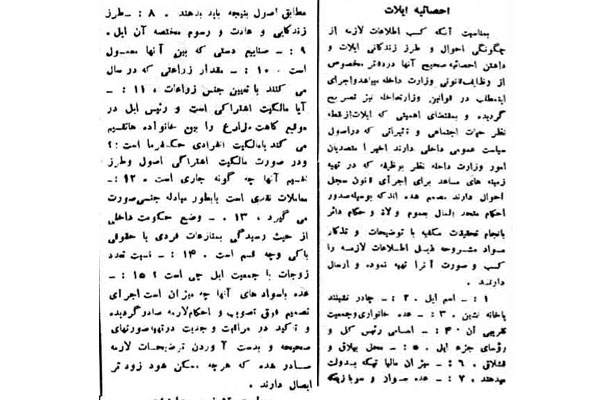 احصائیه ایلات
بمناسبت آنکه کسب اطلاعات لازمه از
چگونگی احوال و طرز زندگانی ایلات و
داشتن احصائیه صحیح آنها دردفتر مخصوصی
از وظایف قانونی وزارت داخله میباشد و اجرای
اینمطلب در قوانین وزارتداخله نیز تصریح
گردیده و بمقتضای اهمیتی که ایلات از نقطه
نظر حیات اجتماعی و تأثیراتی که دراصول
سیاست عمومی دارند اخیرا متصدیان
امور وزارت داخله نظر بوظیفه که در تهیه
زمینه های مساعد برای اجرای قانون سجل
احوال دارند مصمم شده اند که بوسیله صدور
احکام متحدالمال بعموم ولاة و حکام دائر
بانجام تحقیقات مکفیه با توضیحات و تذکار
مواد مشروحه ذیل اطلاعات لازمه را
کسب و صورت آنرا تهیه نموده و ارسال
دارند .
۱ : ـ اسم ایل . ۲ : ـ چادر نشینند
یاخانه نشین . ۳ : ـ عده خانواری وجمعیت
تقریبی آن ۴ : ـ اسامی رئیس کل و
رؤسای جزء ایل . ۵ : ـ محل ییلاق و
قشلاق . ۶ : ـ میزان مالیاتیکه بدولت
میدهند . ۷ : ـ عده سوار و سربازیکه
مطابق اصول بنیچه باید بدهند . ۸ : ـ طرز
زندگانی و عادت و رسوم مختصه آن ایل .
۹ : ـ صنایع دستی که بین آنها معمول
است . ۱۰ : ـ مقدار زراعتی که در سال
می کنند با تعیین جنس زراعات . ۱۱ : ـ
آیا مالکیت اشتراکی است و رئیس ایل در
موقع کاشت مزارع را بین خانواده ها تقسیم
می کند یا مالکیت انفرادی حکمفرما است ؟
ودر صورت مالکیت اشتراکی اصول وطرز
تقسیم آنها چه گونه جاری است . ۱۲ : ـ
معاملات نقدی است یا بطور مبادله جنسی صورت
می گیرد . ۱۳ . ـ وضع حکومت داخلی
از حیث رسیدگی بمنازعات فردی یا حقوقی
باکی وچه قسم است . ۱۴ : ـ نسبت تعدد
زوجات با جمعیت ایل چی است ؟ ۱۵ : ـ
عده باسوادهای آنها چه میزان است اجرای
تصمیم فوق تصویب و احکام لازمه صادر گردیده
و تأکید در مراقبت و جدیت در تهیه صورتهای
صحیحه و بدست آوردن توضیحات لازمه
صادر شده که هرچه ممکن شود زودتر
ایصال دارند .